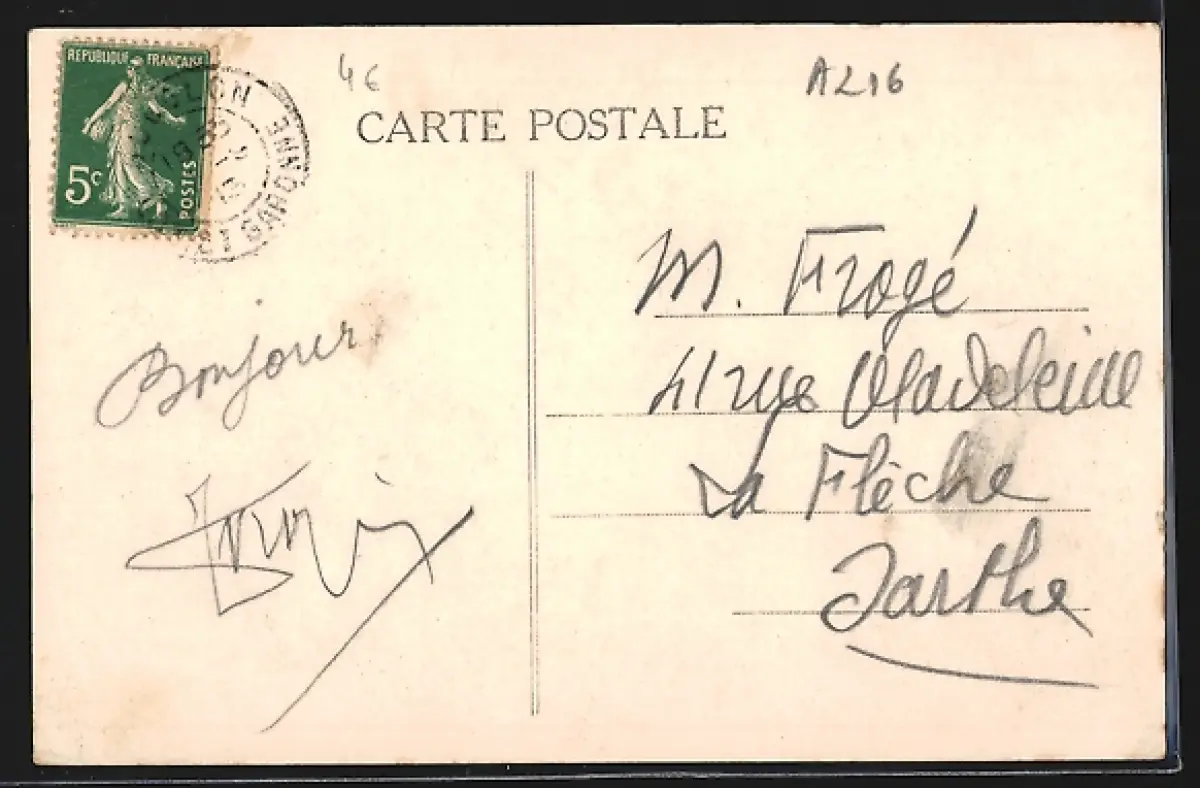 REPUBLIQUE FRANÇAISE
5c
POSTES
GARONNE
4€
A216
CARTE POSTALE
Bonjour
M. Frogé
41 rue Madeleine
La Flèche
Sarthe